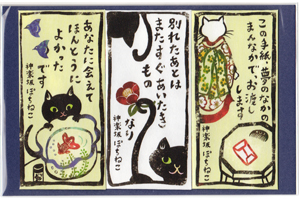 この手紙、夢のなかの
まんなかで、お渡し
します
神楽坂ぽちねこ
別れたあとは
またすぐあいたき
もの
なり
神楽坂ぽちねこ
あなたに会えて
ほんとうに
よかった
です
神楽坂ぽちねこ